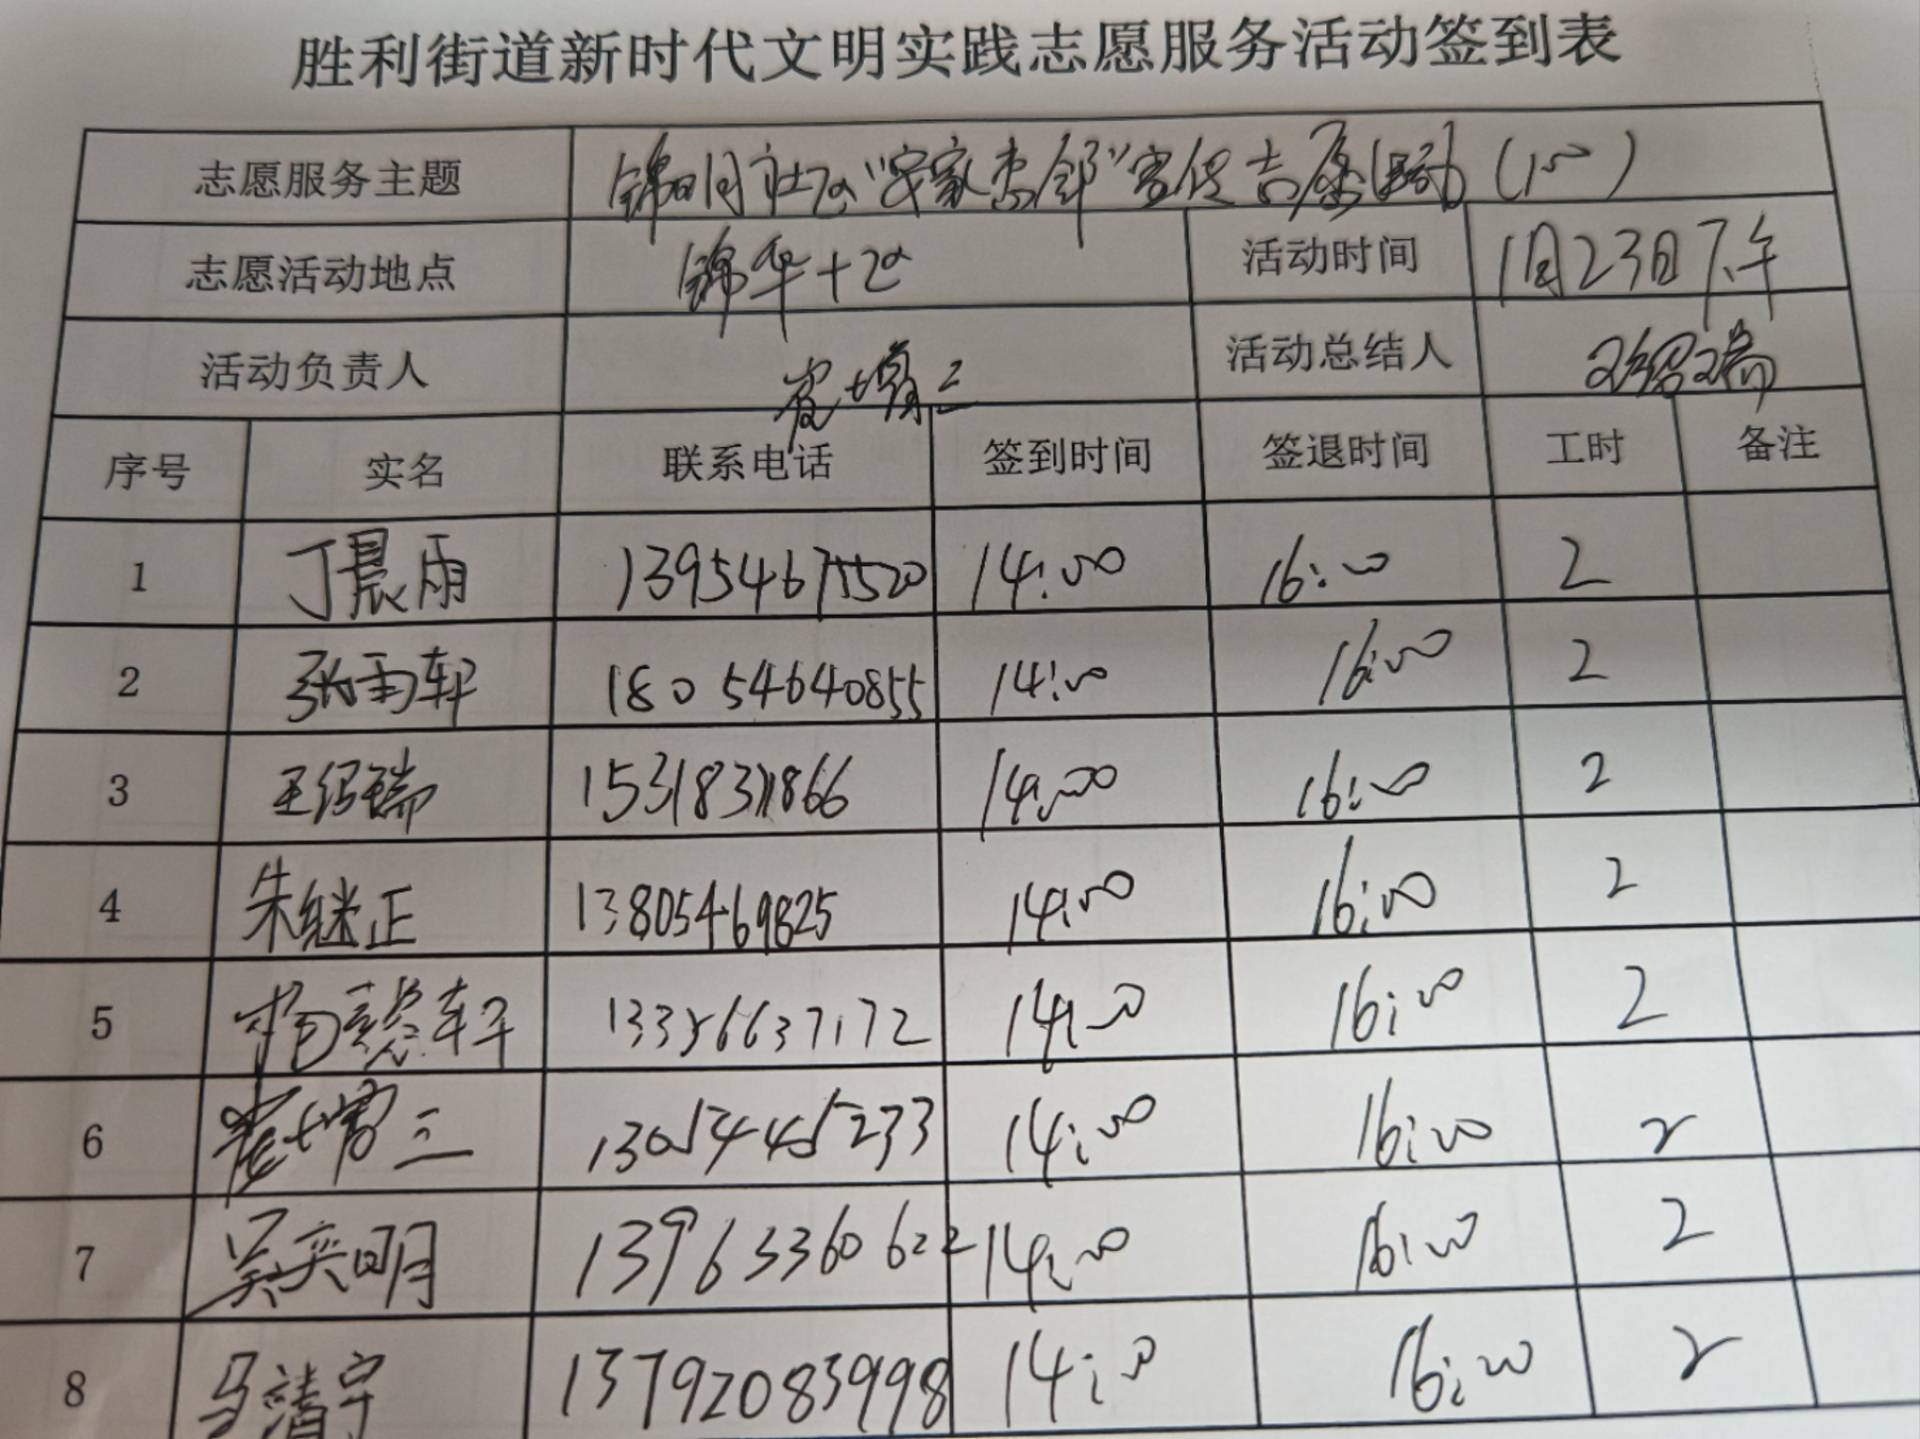 胜利街道新时代文明实践志愿服务活动签到表
志愿服务主题 社区 志愿活动
志愿活动地点 锦华十区 活动时间 1月23日下午
活动负责人 崔增三 活动总结人 王绍瑞
序号 实名 联系电话 签到时间 签退时间 工时 备注
1 丁晨雨 13954675520 14:00 16:00 2
2 张雨轩 18054640855 14:00 16:00 2
3 王绍瑞 15318371866 14:00 16:00 2
4 朱继正 13805469825 14:00 16:00 2
5 轩 13356637172 14:00 16:00 2
6 崔增三 13054445233 14:00 16:00 2
7 吴奕明 13963360622 14:00 16:00 2
8 马清宇 13792083998 14:00 16:00 2